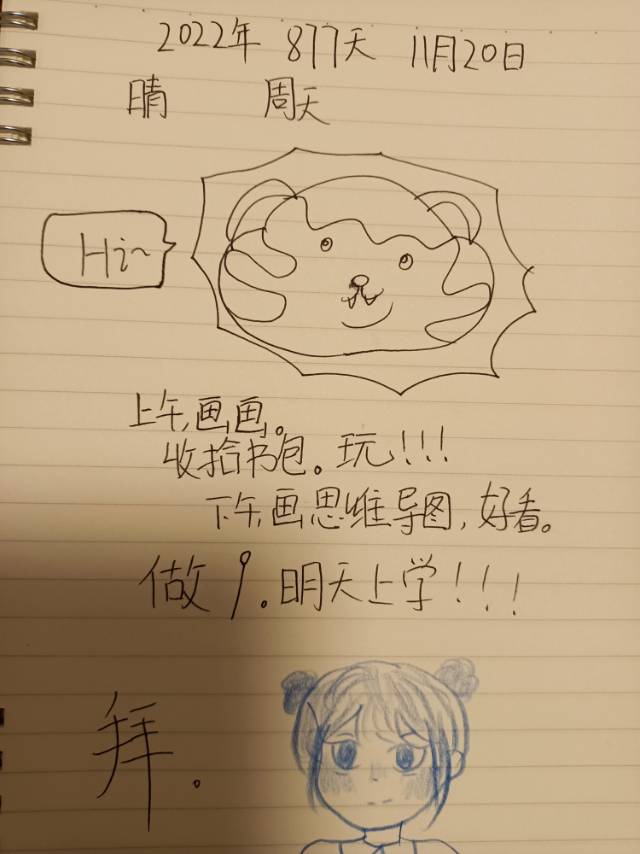 2022年 877天 11月20日
晴 周天
Hi~
上午,画画。
收拾书包。玩!!!
下午,画思维导图,好看。
做9。明天上学!!!
拜。